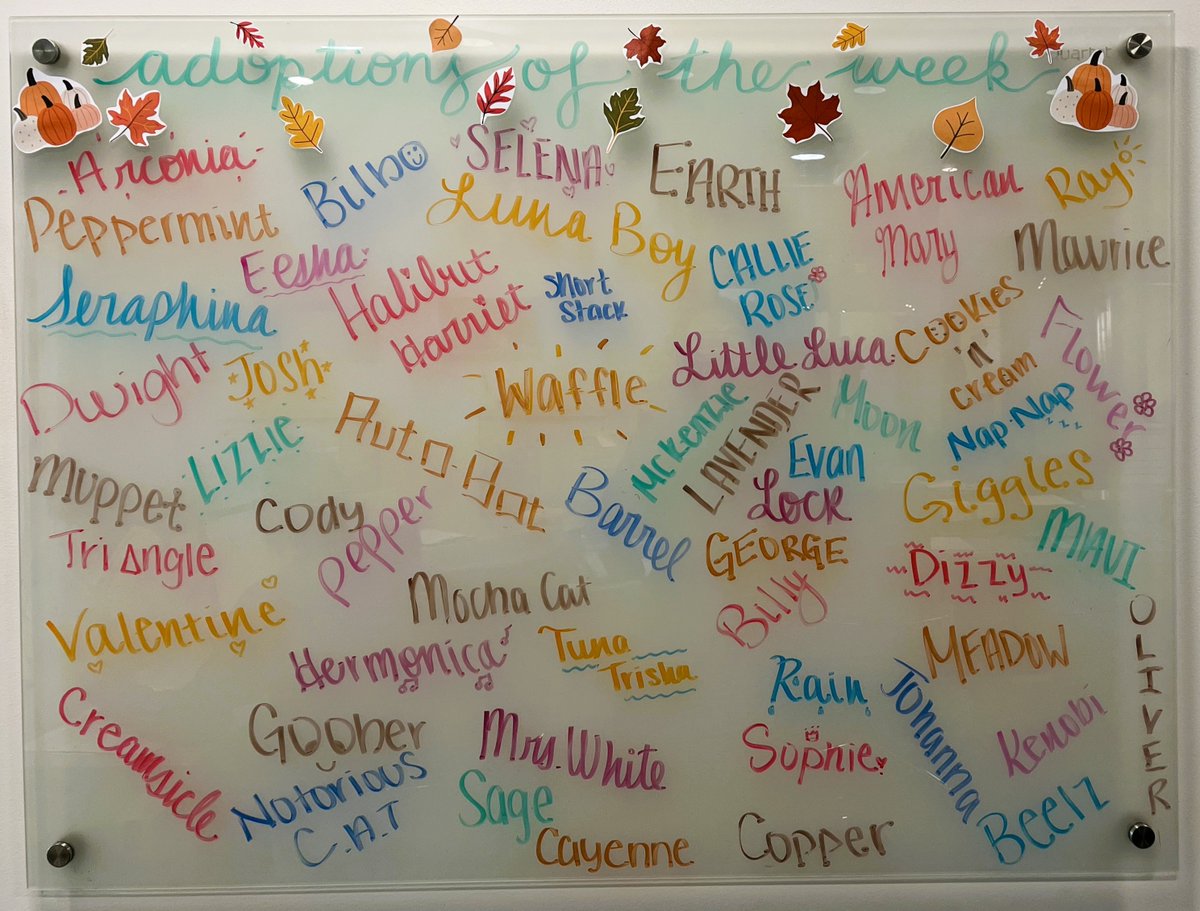 Quartet
adoptions of the week
Arconia
Bilbo
SELENA
EARTH
American
Mary
Ray
Peppermint
Luna Boy
Maurice
Eesha
CALLIE
ROSE
Seraphina
Halibut
Harriet
Short
Stack
Cookies
'n'
cream
Flower
Dwight
Josh
Waffle
Little Luca
Nap-Nap
Auto-Hot
Mckenzie
LAVENDER
Moon
Lizzie
Evan
Muppet
Cody
Barrel
Lock
Giggles
Pepper
Triangle
GEORGE
MIAVI
Dizzy
Mocha Cat
Billy
OLIVER
Valentine
Hermonica
Tuna
Trisha
MEADOW
Rain
Johanna
Kenobi
Creamsicle
Goober
Mrs. White
Sophie
Notorious
C.A.T
Sage
Beelz
Cayenne
Copper